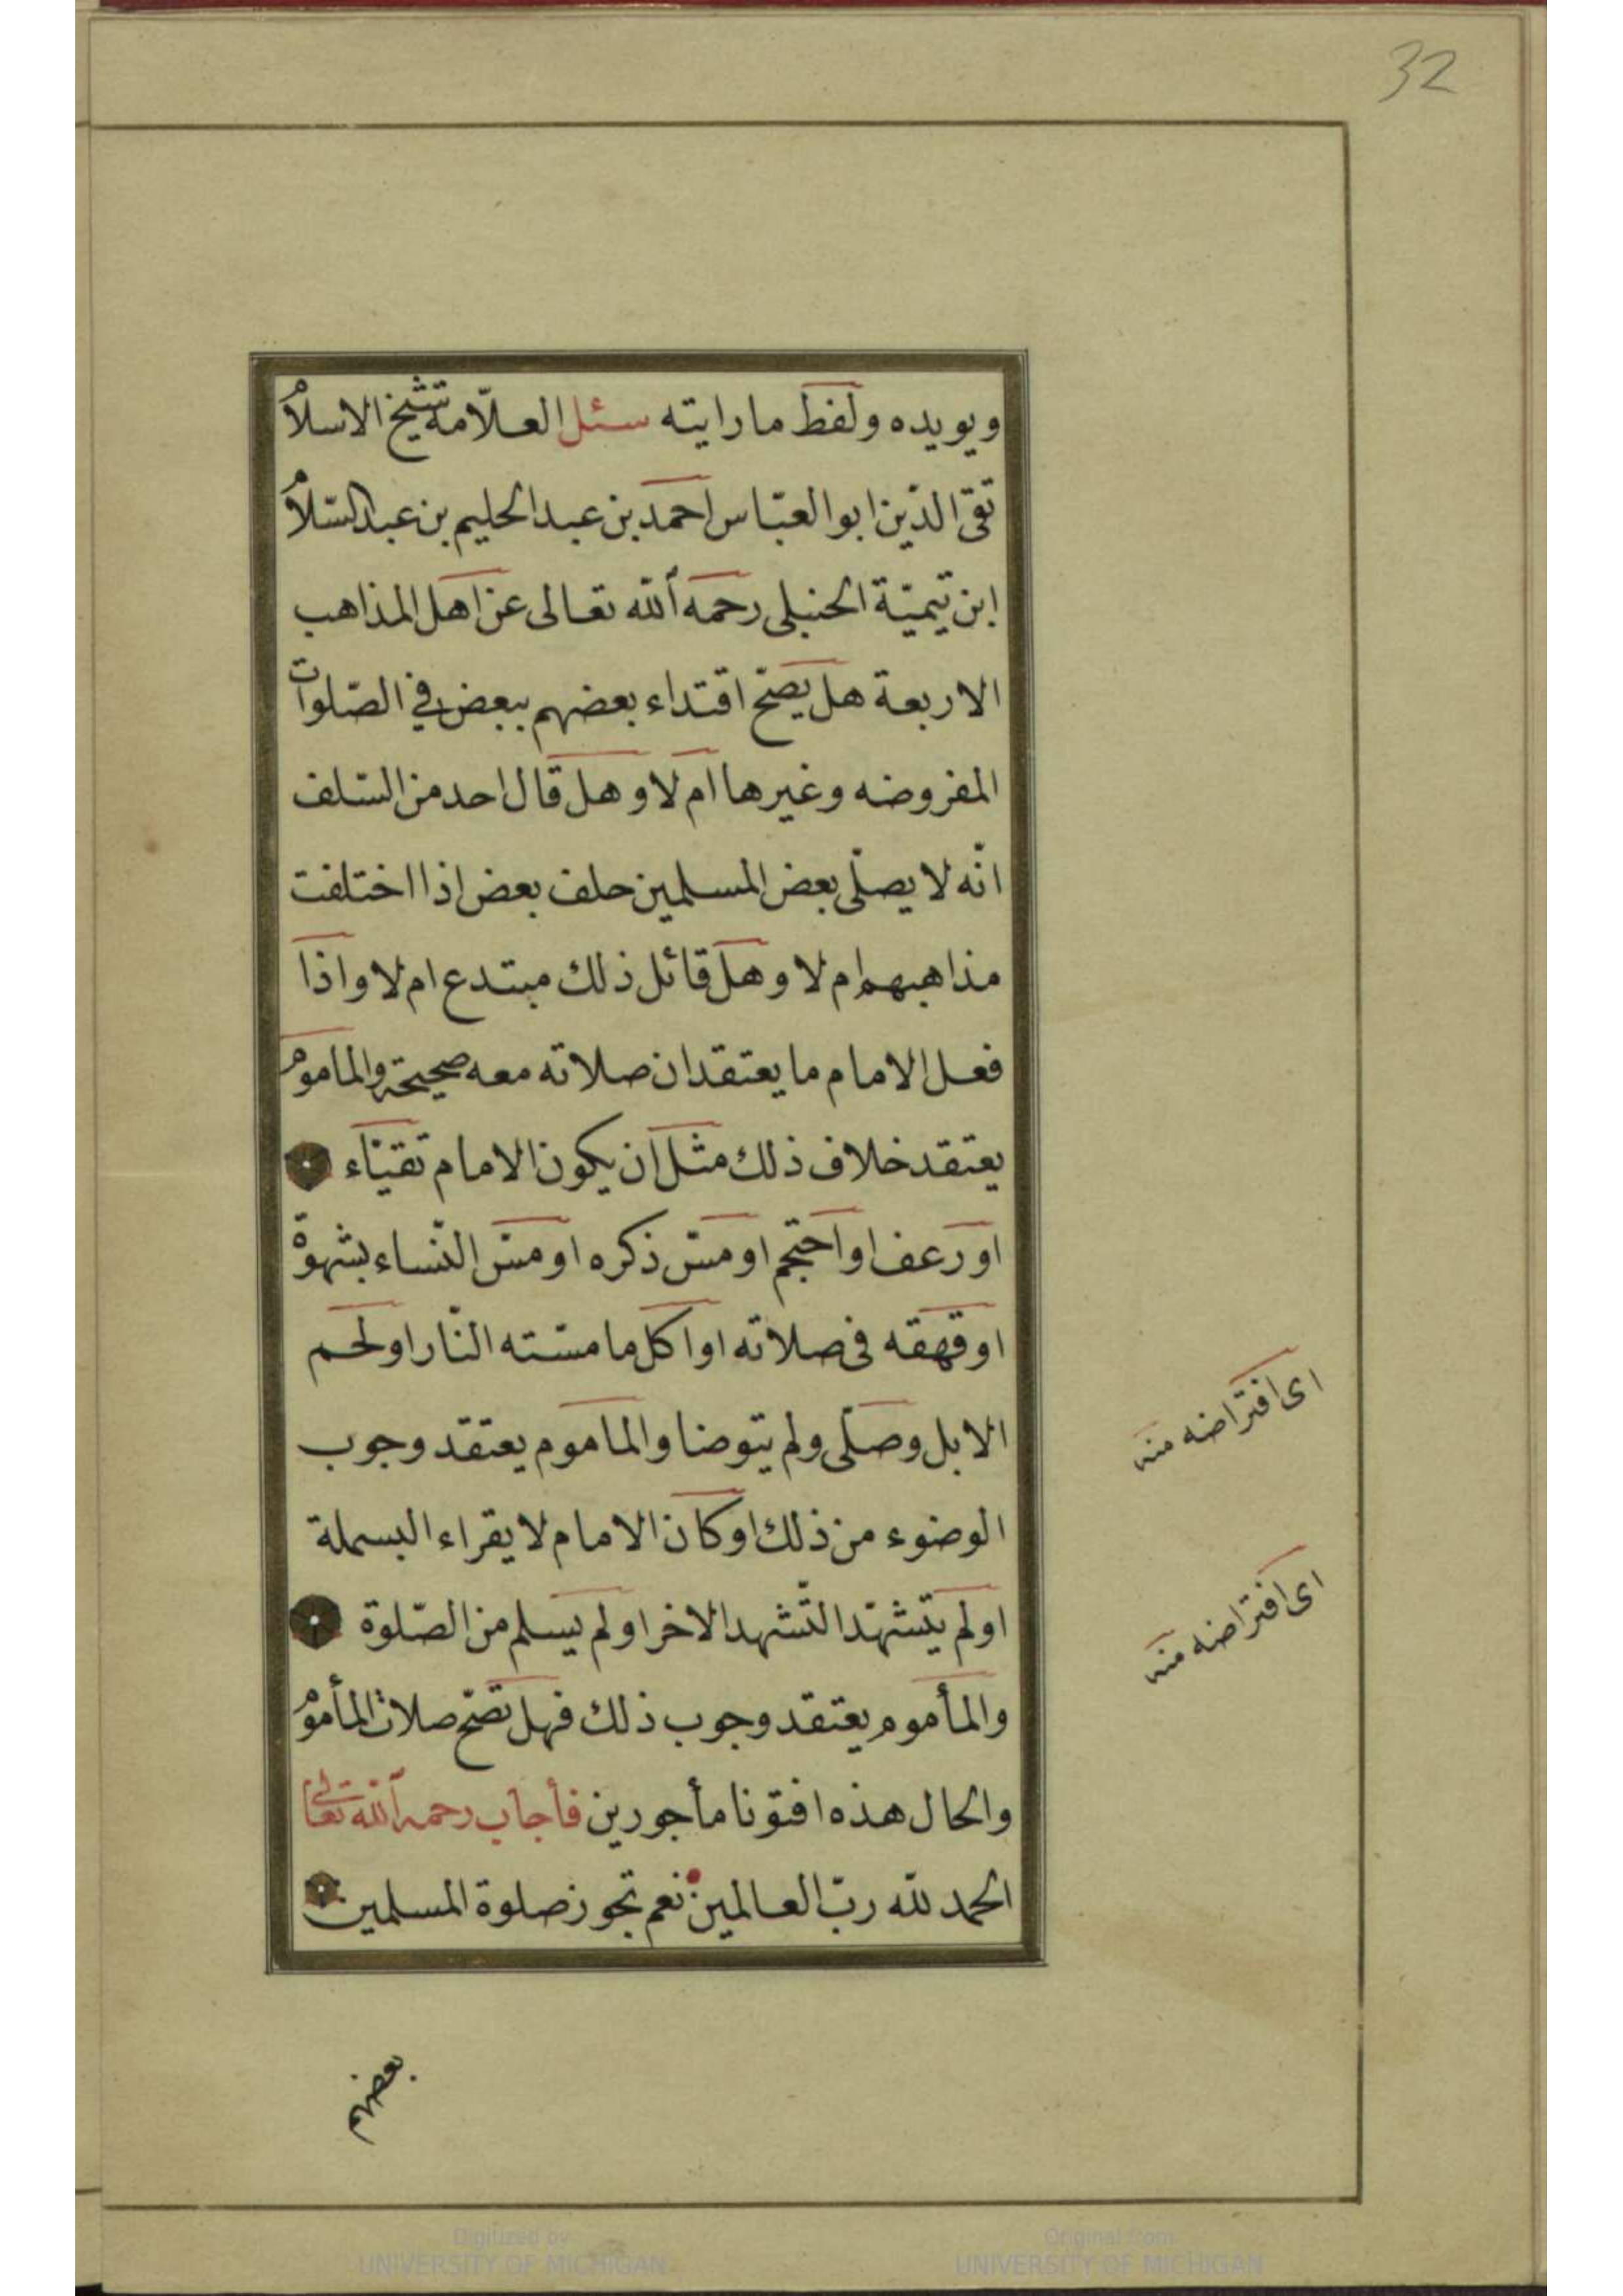 32
ويويده ولفظ ما رايته سئل العلّامة شيخ الاسلام
تقى الدّين ابو العبّاس احمد بن عبد الحليم بن عبد السّلام
ابن تيميّة الحنبلى رحمه الله تعالى عن اهل المذاهب
الاربعة هل يصحّ اقتداء بعضهم ببعض فى الصّلوات
المفروضه وغيرها ام لا وهل قال احد من السّلف
انّه لا يصلّى بعض المسلمين حلف بعض اذا اختلفت
مذاهبهم ام لا وهل قائل ذلك مبتدع ام لا واذا
فعل الامام ما يعتقد ان صلاته معه صحيحة والماموم
يعتقد خلاف ذلك مثل ان يكون الامام تقيّاء
او رعف او احتجم او مسّ ذكره او مسّ النّساء بشهوة
او قهقه فى صلاته او اكل ما مسّته النّار او لحم
الابل وصلّى ولم يتوضا والماموم يعتقد وجوب
الوضوء من ذلك او كان الامام لا يقراء البسملة
اى افتراضه منه
او لم يتشهّد التّشهد الاخر او لم يسلم من الصّلوة
اى افتراضه منه
والمأموم يعتقد وجوب ذلك فهل تصحّ صلات المأموم
والحال هذه افتونا مأجورين فأجاب رحمه الله تعالى
الحمد لله ربّ العالمين نعم تجوز صلوة المسلمين
بعضهم
Digitized by
UNIVERSITY OF MICHIGAN
Original from
UNIVERSITY OF MICHIGAN